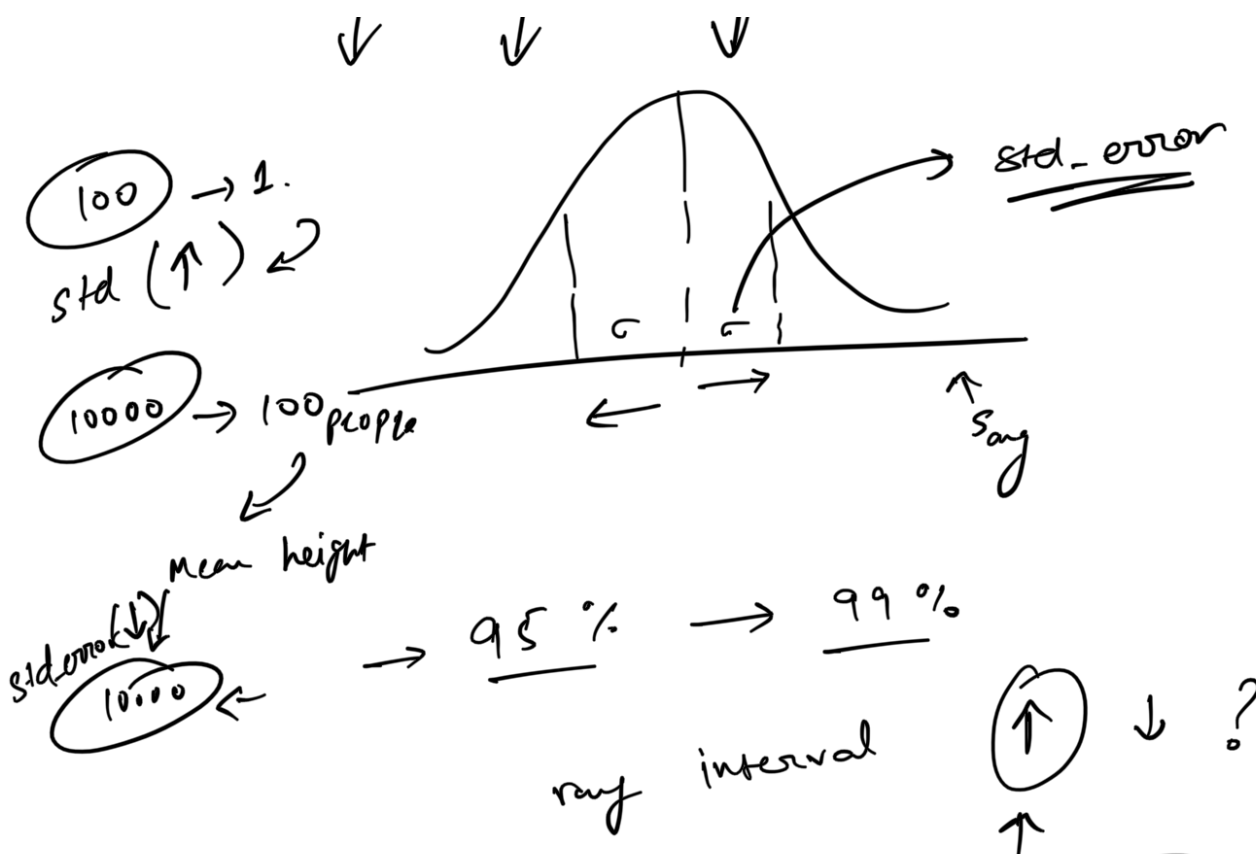 100 → 1.
std (↑)
std_error
σ σ
10000 → 100 people
Savg
Mean height
std_error (↓)
10000
→ 95 % → 99 %
interval
↑ ↓ ?